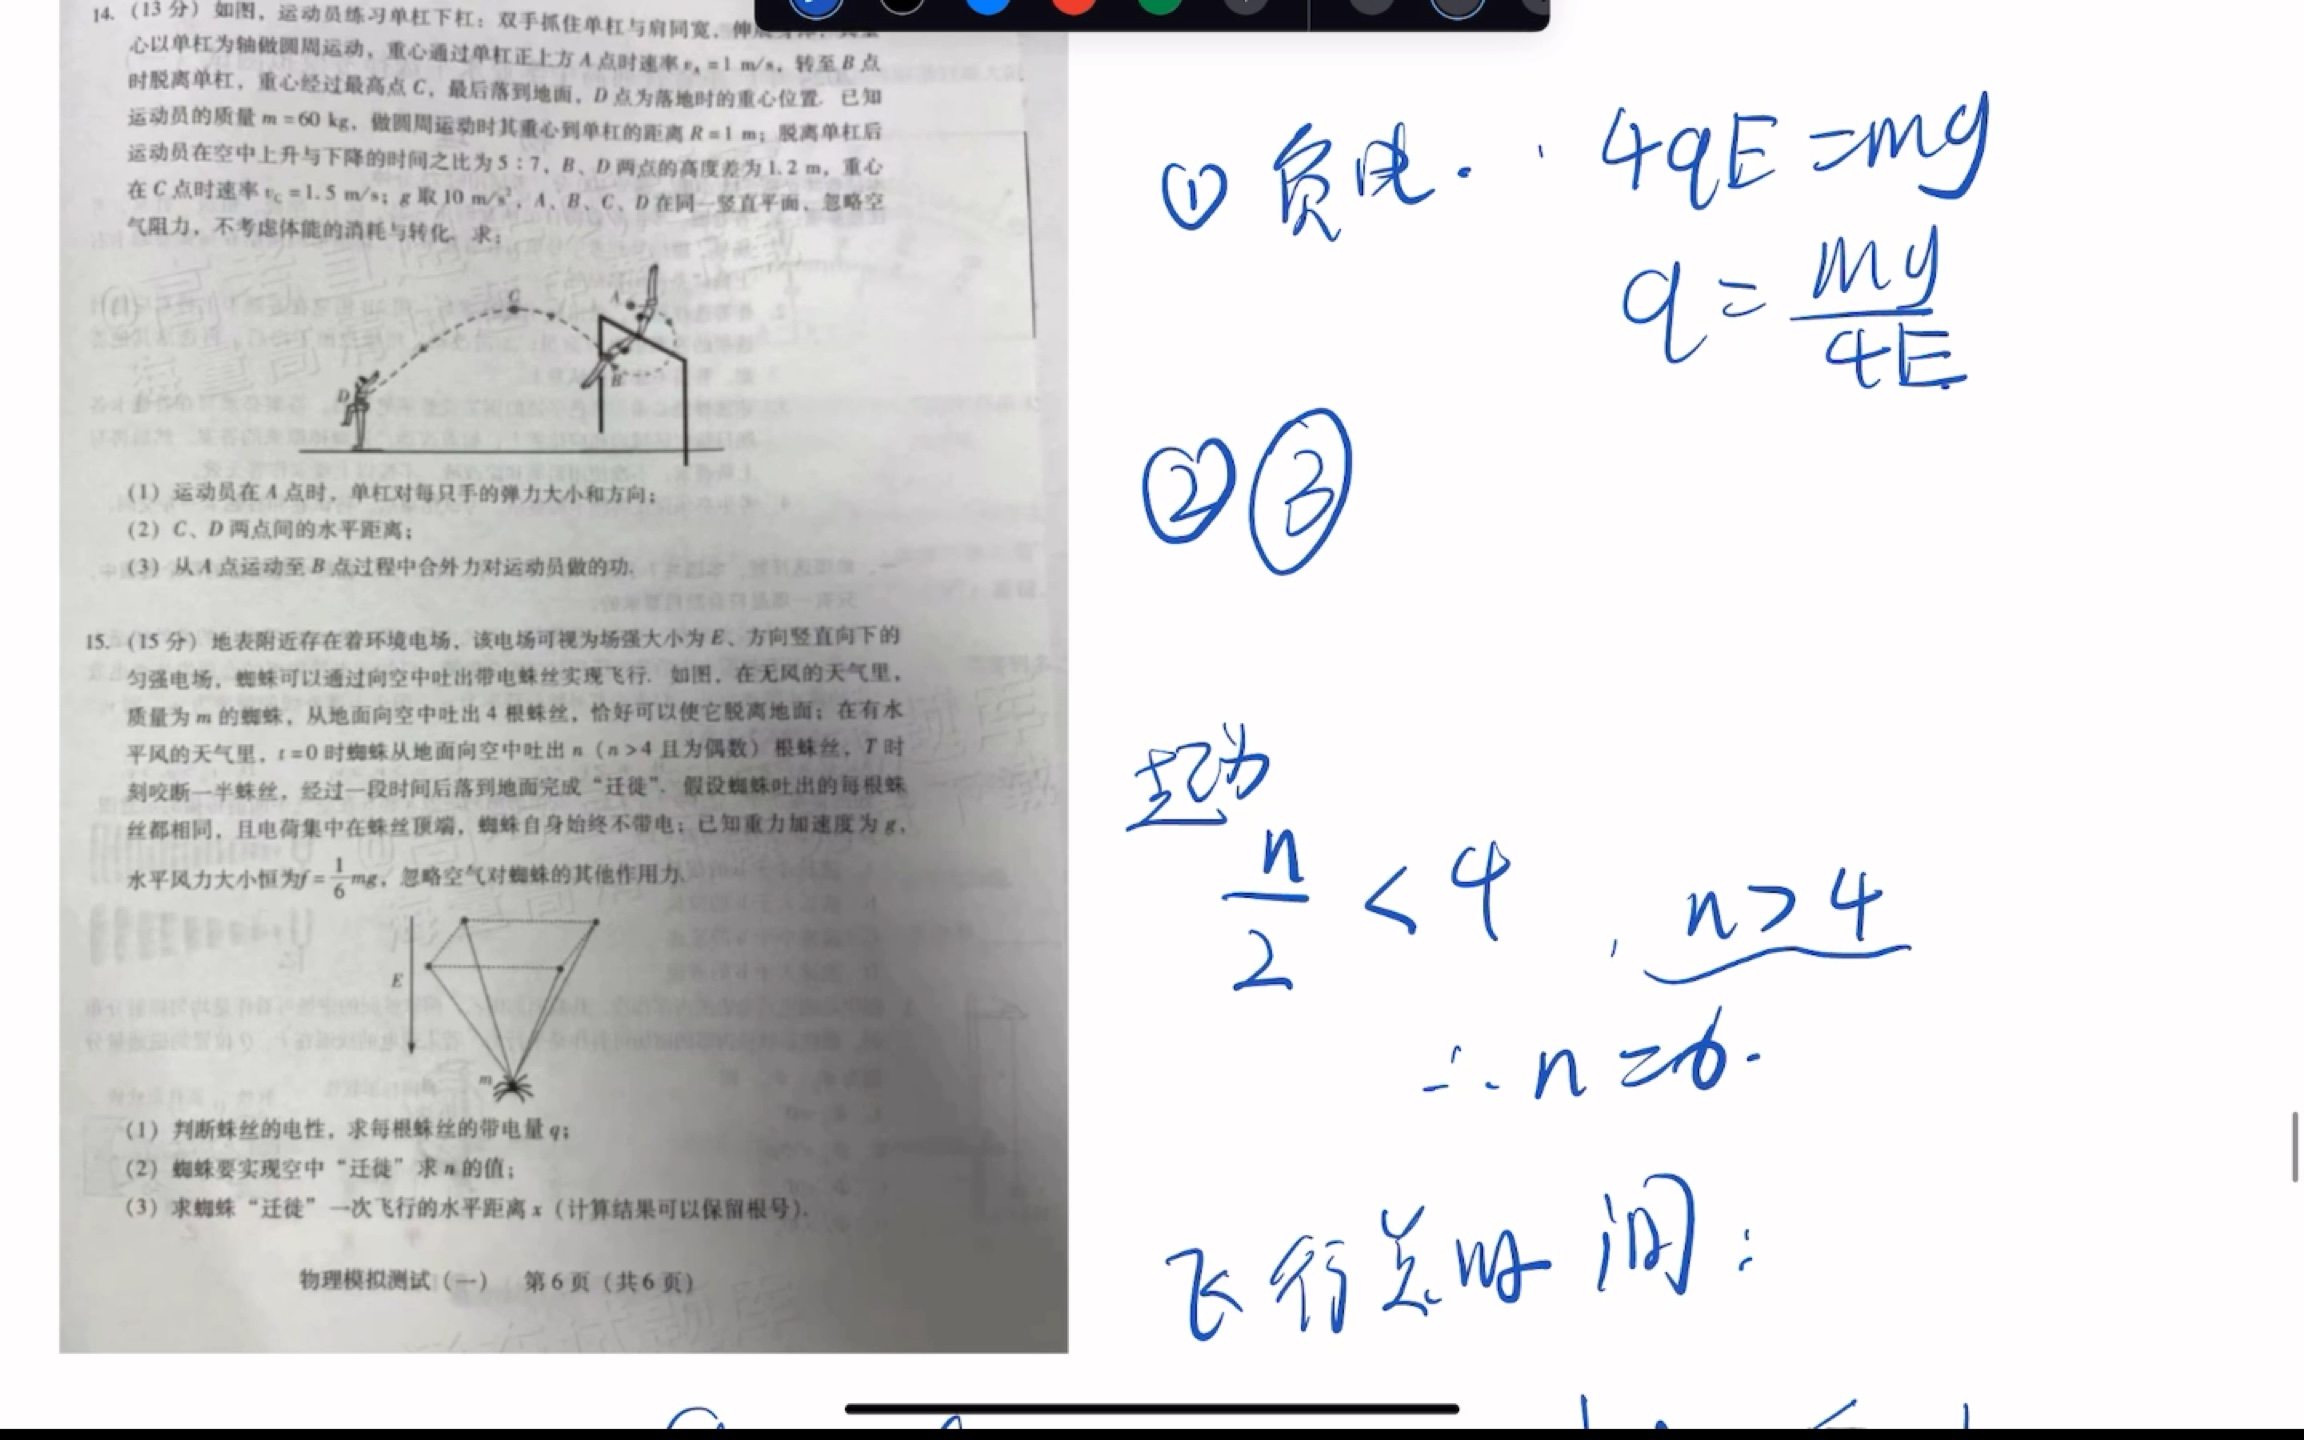 14. (13 分) 如图, 运动员练习单杠下杠: 双手抓住单杠与肩同宽, 伸
心以单杠为轴做圆周运动, 重心通过单杠正上方 A 点时速率 v_A = 1 m/s, 转至 B 点
时脱离单杠, 重心经过最高点 C, 最后落到地面, D 点为落地时的重心位置. 已知
运动员的质量 m = 60 kg, 做圆周运动时其重心到单杠的距离 R = 1 m; 脱离单杠后
运动员在空中上升与下降的时间之比为 5 : 7, B、D 两点的高度差为 1.2 m, 重心
在 C 点时速率 v_C = 1.5 m/s; g 取 10 m/s², A、B、C、D 在同一竖直平面, 忽略空
气阻力, 不考虑体能的消耗与转化. 求:
C
A
B
D
(1) 运动员在 A 点时, 单杠对每只手的弹力大小和方向;
(2) C、D 两点间的水平距离;
(3) 从 A 点运动至 B 点过程中合外力对运动员做的功.
15. (15 分) 地表附近存在着环境电场, 该电场可视为场强大小为 E、方向竖直向下的
匀强电场, 蜘蛛可以通过向空中吐出带电蛛丝实现飞行. 如图, 在无风的天气里,
质量为 m 的蜘蛛, 从地面向空中吐出 4 根蛛丝, 恰好可以使它脱离地面; 在有水
平风的天气里, t = 0 时蜘蛛从地面向空中吐出 n (n > 4 且为偶数) 根蛛丝, T 时
刻咬断一半蛛丝, 经过一段时间后落到地面完成“迁徙”. 假设蜘蛛吐出的每根蛛
丝都相同, 且电荷集中在蛛丝顶端, 蜘蛛自身始终不带电; 已知重力加速度为 g,
水平风力大小恒为 f = 1/6 mg, 忽略空气对蜘蛛的其他作用力.
E
m
(1) 判断蛛丝的电性, 求每根蛛丝的带电量 q;
(2) 蜘蛛要实现空中“迁徙”求 n 的值;
(3) 求蜘蛛“迁徙”一次飞行的水平距离 x (计算结果可以保留根号).
物理模拟测试 (一) 第 6 页 (共 6 页)
① 负电. 4qE = mg
q = mg/4E
② ③
n/2 < 4, n > 4
∴ n = 6.
飞行总时间: